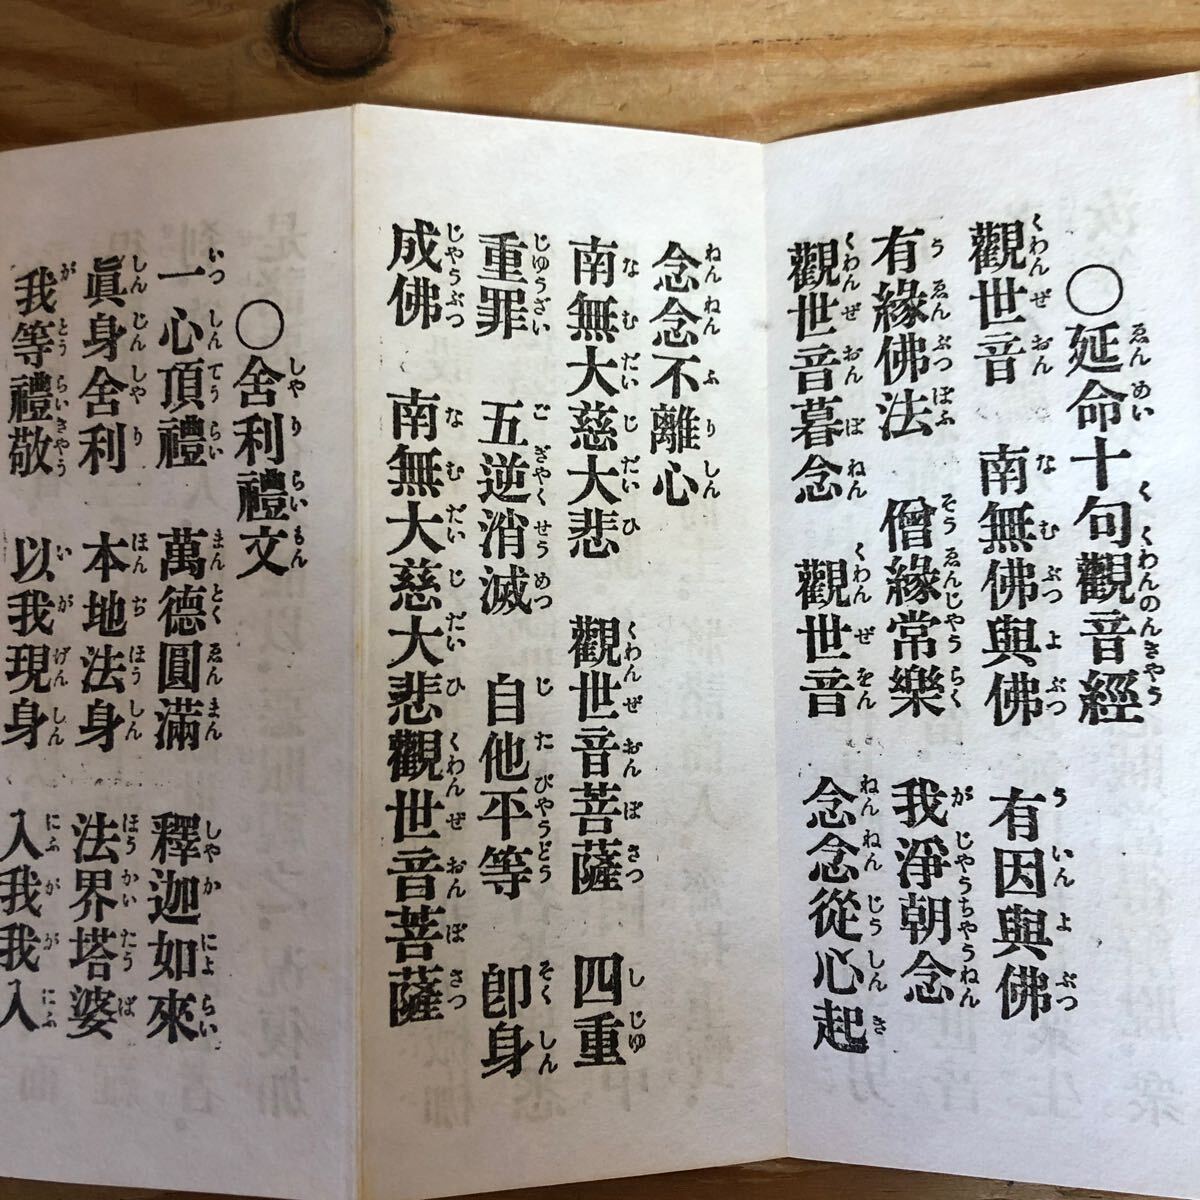 ○延命十句觀音經
觀世音 南無佛與佛 有因與佛
有緣佛法 僧緣常樂 我淨朝念
觀世音暮念 觀世音 念念從心起
念念不離心
南無大慈大悲 觀世音菩薩 四重
重罪 五逆消滅 自他平等 卽身
成佛 南無大慈大悲觀世音菩薩
○舍利禮文
一心頂禮 萬德圓滿 釋迦如來
眞身舍利 本地法身 法界塔婆
我等禮敬 以我現身 入我我入